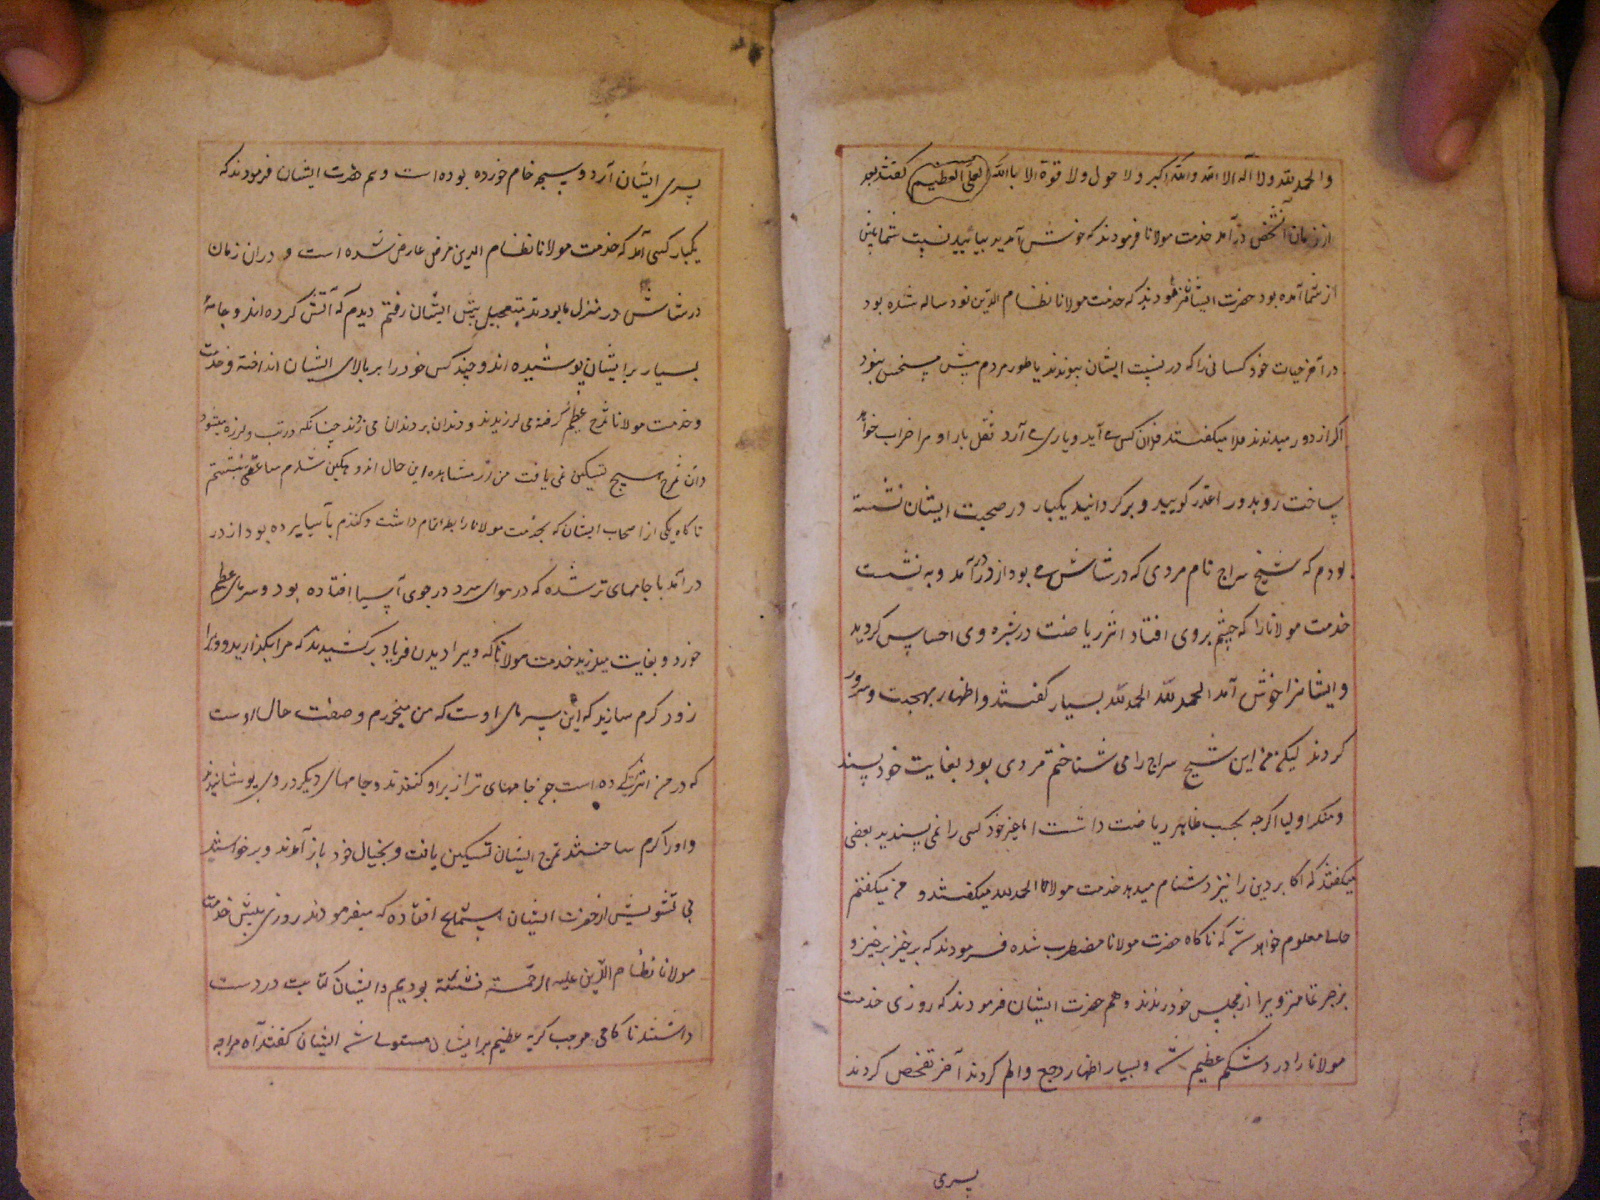 والحمد لله ولا اله الا الله والله اکبر ولا حول ولا قوة الا بالله العلی العظیم گفتند بعد
از زمان آن شخص درآمد خدمت مولانا فرمودند که خوش آمدید بیائید نسبت شما پیش
از شما آمده بود حضرت ایشان فرمودند که خدمت مولانا نظام الدین نود ساله شده بود
در آخر حیات خود کسانی را که در نسبت ایشان نبودند یا طور مردم پیش
اگر از دور میدیدند ملا میگفتند فلان کس می آید و باری می آرد ثقل بار او مرا خراب خواهد
ساخت رو بدو را عذر گویید و برگردانید یکبار در صحبت ایشان نشسته
بودم که شیخ سراج نام مردی که در شاش می بود از در درآمد و به نشست
خدمت مولانا را که چشم بروی افتاد اثر ریاضت در بشره وی احساس کردید
و ایشانرا خوش آمد الحمد لله الحمد لله بسیار گفتند و اظهار بهجت و سرور
کردند لیکن من این شیخ سراج را می شناختم مردی بود بغایت خود پسند
و منکر اولیا اگرچه بحسب ظاهر ریاضت داشت اما غیر خود کسی را نمی پسندید بعضی
میگفتند که اکابر دین را نیز دشنام میدهد خدمت مولانا الحمد لله میگفتند و من میگفتم
حالا معلوم خواهد شد که ناگاه حضرت مولانا مضطرب شده فرمودند که برخیز برخیز و
بزجر تمامتر ویرا از مجلس خود راندند و هم حضرت ایشان فرمودند که روزی خدمت
مولانا را درد شکم عظیم شد و بسیار اظهار وجع و الم کردند آخر تفحص کردند
پسری
پسری ایشان آرد و سیب خام خورده بوده است و هم حضرت ایشان فرمودند که
یکبار کسی آمد که خدمت مولانا نظام الدین مرض عارض شده است و دران زمان
در شاش در منزل ما بودند بتعجیل پیش ایشان رفتم دیدم که آتش کرده اند و جامهٔ
بسیار بر ایشان پوشیده اند و چند کس خود را بر بالای ایشان انداخته و خدمت
و خدمت مولانا تمرج عظیم گرفته می لرزیدند و دندان بر دندان می زدند چنانکه در تب و لرزه میشود
و آن تمرج هیچ تسکین نمی یافت من از مشاهده این حال اندوهگین شدم ساعتی بنشستم
ناگاه یکی از اصحاب ایشان که بخدمت مولانا رابطه تمام داشت و گندم بآسیا برده بود از در
درآمد با جامهای تر شده که در هوای سرد در جوی آسیا افتاده بود و سرمای عظیم
خورده و بغایت میلرزید خدمت مولانا که ویرا دیدن فریاد برکشیدند که مرا بگذارید و ویرا
زود گرم سازید که این سرمای اوست که من میخورم و صفت حال اوست
که در من اثر کرده است جامهای تر از بر او کندند و جامهای دیگر در وی پوشانیدند
و او را گرم ساختند تمرج ایشان تسکین یافت و بحال خود باز آمدند و برخواستند
بی تشویش از حضرت ایشان استماع افتاده که میفرمودند روزی پیش خدمت
مولانا نظام الدین علیه الرحمة نشسته بودیم و ایشان کتابت در دست
داشتند ناگاه بی موجب گریه عظیم بر ایشان مستولی شد ایشان گفتند آه مرا چه